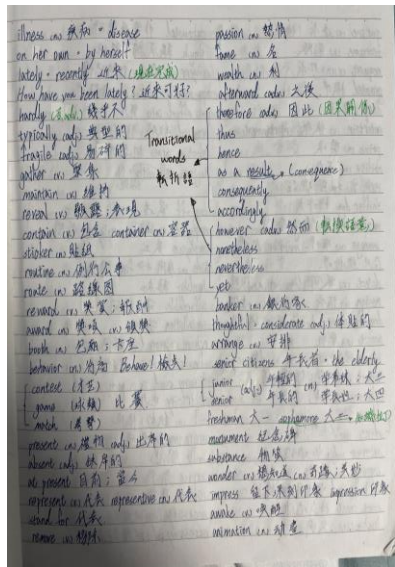 illness (n) 疾病 = disease
on her own = by herself
lately = recently 近來 (現在完成)
How have you been lately? 近來可好?
hardly (否adv.) 幾乎不
typically (adj) 典型的
fragile (adj) 易碎的
gather (v) 聚集
maintain (v) 維持
reveal (v) 顯露;表現
contain (v) 包含 container (n) 容器
sticker (n) 貼紙
routine (n) 例行公事
route (n) 路線圖
reward (n) 獎賞;報酬
award (n) 獎項 (v) 頒獎
booth (n)
behavior (n) 行為 Behave!
contest
game 比賽
match
present (n) 禮物 (adj) 出席的
absent (adj) 缺席的
at present 目前;當今
represent (v) 代表 representive (n) 代表
stand for 代表
remove (v) 移除
Transitional
words
轉折語
passion (n) 熱情
fame (n) 名
wealth (n) 利
afterward (adv) 之後
therefore (adv) 因此 (因果關係)
thus
hence
as a result = (consequence)
consequently
accordingly
however (adv) 然而 (轉換語意)
nonetheless
nevertheless
yet
banker (n) 銀行家
thoughtful = considerate (adj) 體貼的
arrange (v) 安排
senior citizens 年長者 = the elderly
junior (adj) 年輕的 (n) 大三
senior 年長的 (n) 大四
freshman 大一 sophomore 大二
monument 紀念碑
substance 物質
wonder (v) 想知道 (n) 奇蹟
impress 留下深刻印象 impression 印象
awake (v) 喚醒
animation (n) 動畫